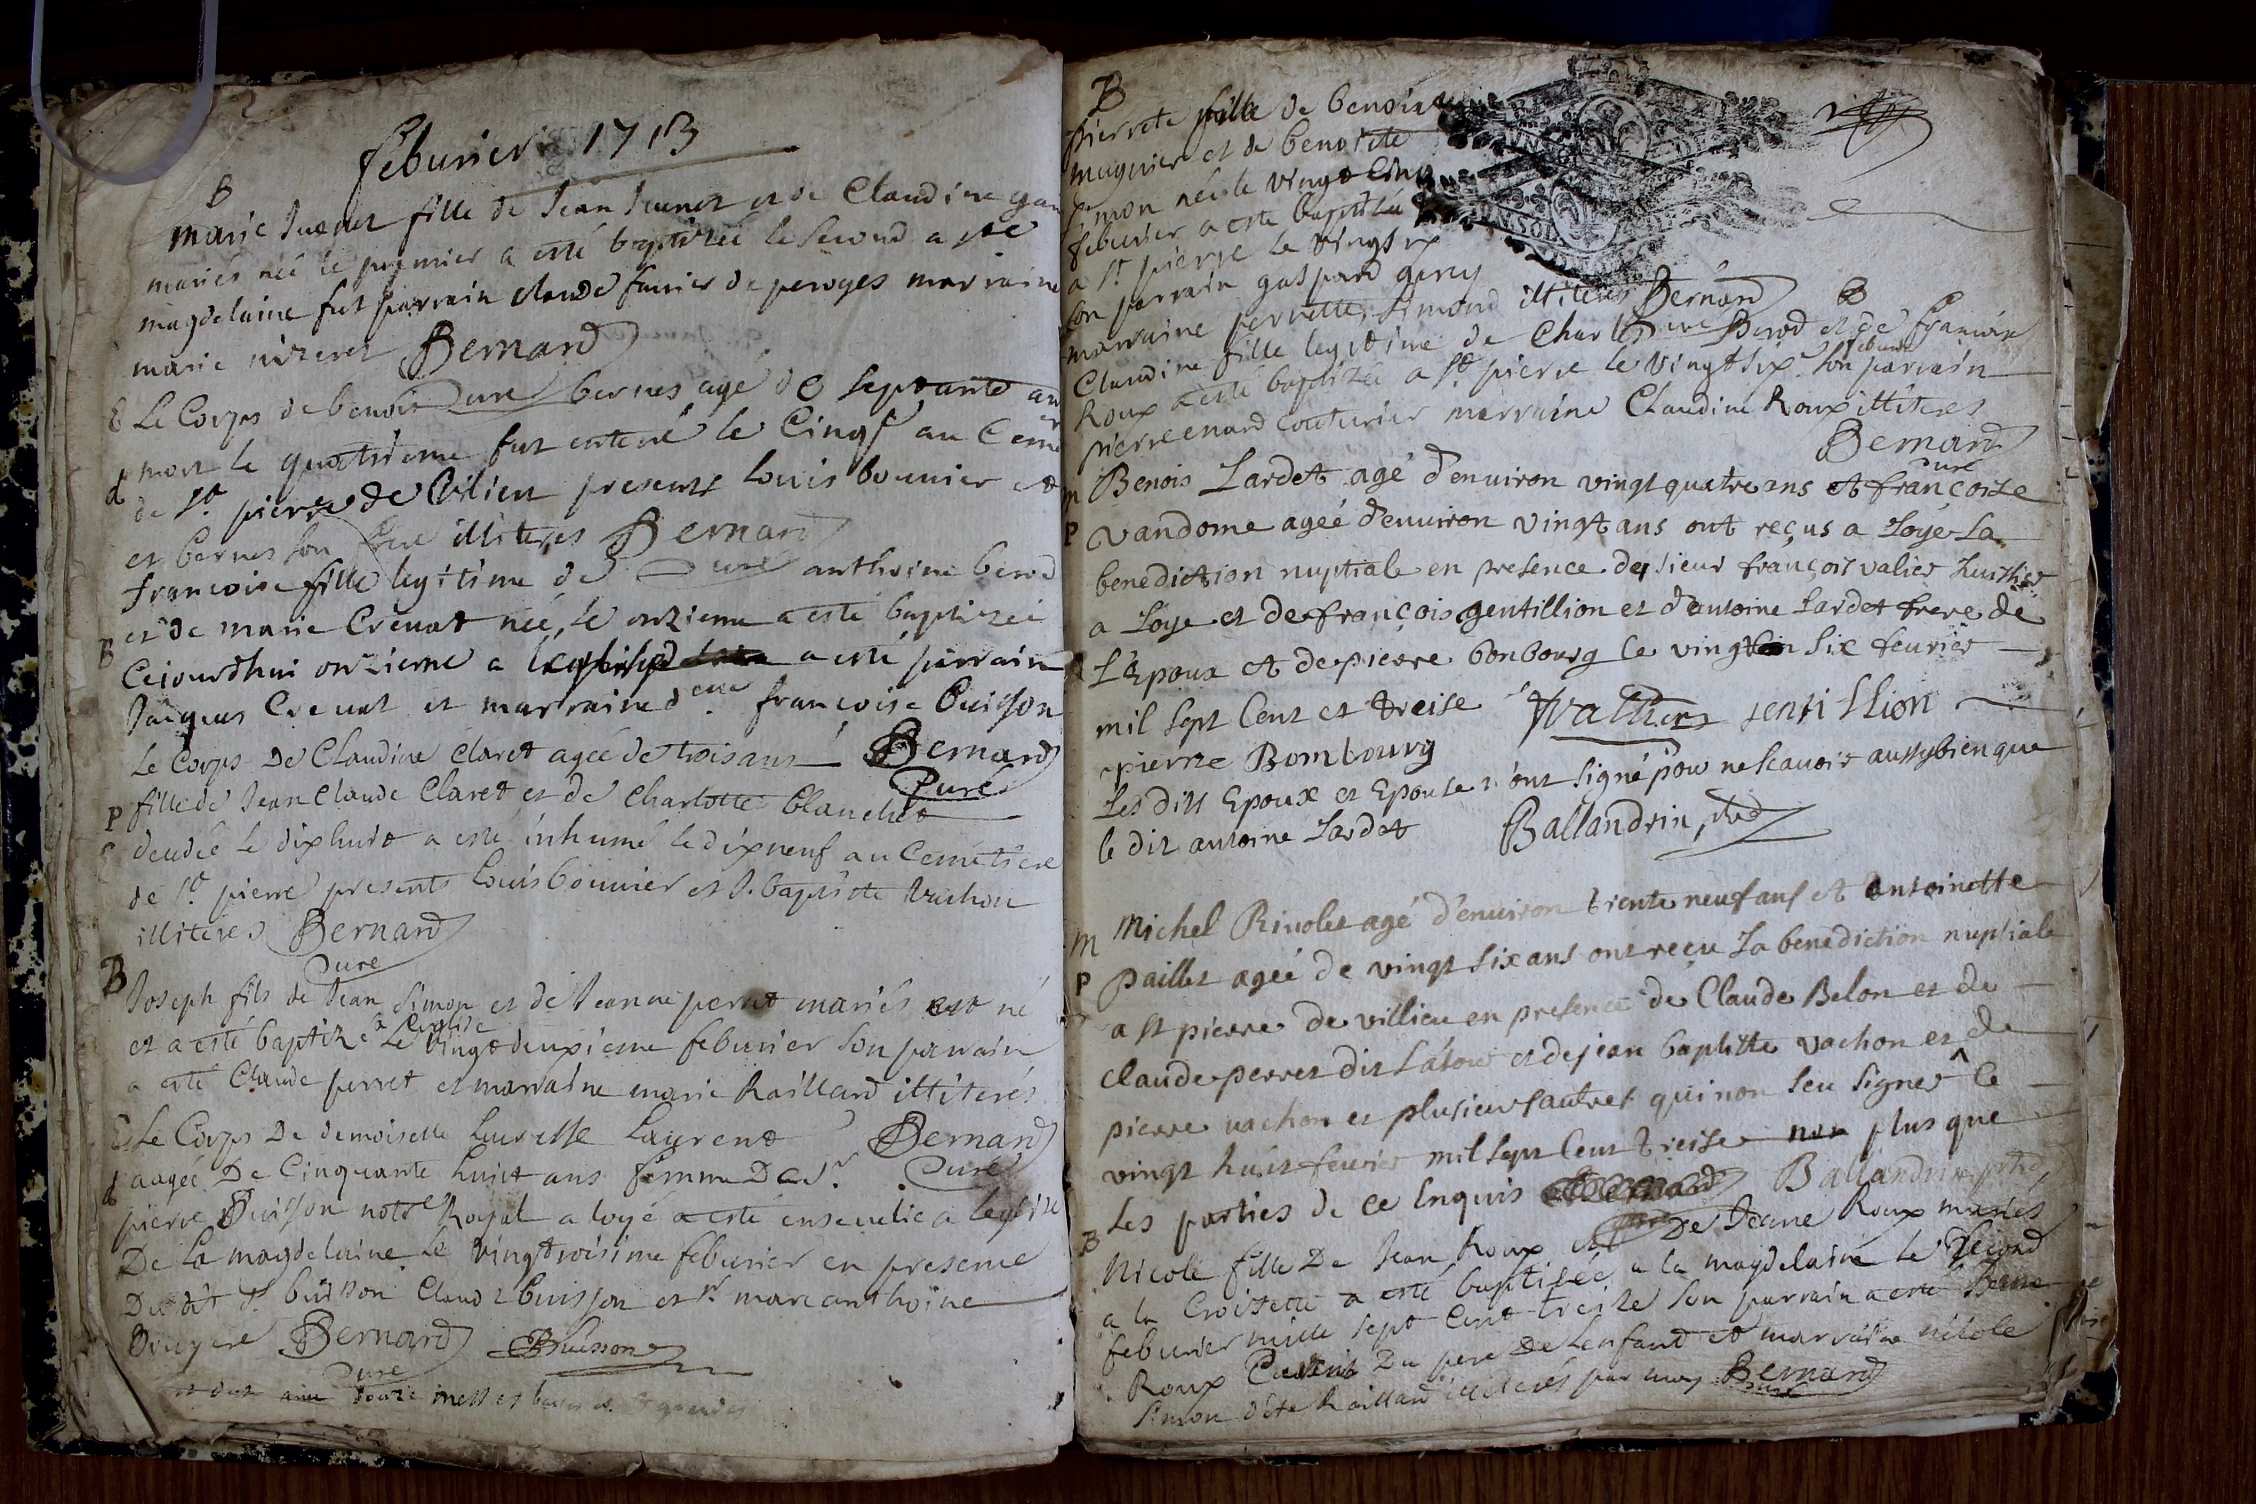 feburier 1713
B
marie Juenet fille de Jean Juenet et de Claudine
mariés née le premier a esté baptizée le second a ste
magdelaine fut parrain claude favier de peroges marraine
marie Bernard
Le Corps de benoit bernes agé de septante ans
mort le quatrieme fut enterré le Cinqs au Ceme
de st pierre de Vilieu presents louis bouvier et
et bernes son illiteres Bernard
Curé
francoise fille legitime de anthoine berod
B
et de marie Crevat née le onzieme a esté baptizée
Cejourdhui onzieme a leglise a esté parrain
Jacques Crevat et marraine d.elle francoise Buisson
Le Corps De Claudine Claret agée de trois ans Bernard
Curé
P
fille de Jean Claude Claret et de Charlotte blanchet
decedée le dixhuit a esté inhumé le dixneuf au Cemetiere
de st. pierre presents Louis bouvier et J. baptiste Vachon
illiteres Bernard
Curé
B
Joseph fils de Jean Simon et de Jeanne perret mariés est né
et a esté baptizé a leglise le vingtdeuxieme feburier son parrain
a esté Claude perret et marraine marie Raillard illiterés
Le Corps De demoiselle Lucresse Laurent Bernard
Curé
d
aagée De Cinquante huict ans femme De Sr.
pierre Buisson not.re Royal a loye a esté ensevelie a leglise
De La magdelaine le vingtroisime feburier en presence
Du dit Sr. buisson Claude buisson et Sr. marc anthoine
Bernard Buisson
Curé
B
pierrete fille de benoist
mugnier et de benoite
Simon née le vingt Cinq
feburier a esté baptisée
a st pierre le vingtsix
son parrain gaspard giry
marraine pernette Simond illiteres Bernard
Curé
B
Claudine fille legitime de Charle Berod et de francoise
Roux a esté baptizée a st. pierre le vingtsix feburier son parrain
pierre enard couturier marraine Claudine Roux illiteres
Bernard
Curé
m
Benois Lardet agé d'enuiron vingt quatre ans et francoise
P
vandome ageé d'enuiron vingt ans ont reçus a Loye La
benediction nuptiale en presence de sieur françois valier huissier
a Loye et de françois gentillion et d'antoine Lardet frere de
L'Epoux et de pierre bonbourg le vingt six feurier
mil sept Cent et treise Vallier Jentillion
pierre Bombourg
Les dits Epoux et Epouse n'ont signé pour ne scauoir aussy bien que
le dit antoine Lardet Ballandrin, ptre
m
Michel Rivolet agé d'enuiron trente neuf ans et antoinette
P
paillet agée de vingt six ans ont reçu la benediction nuptiale
a st pierre de villieu en presence de Claude Belon et de
claude perret dit Latour et de jean baptiste vachon et de
pierre vachon et plusieurs autres qui non seu signer ce
vingt huit feurier mil sept Cent treise non plus que
Les parties de ce Enquis Ballandrin ptre
B
Nicole fille De Jean Roux et De Jeane Roux mariés
a la Croisette a esté baptisée a la magdelaine le second
feburier mille sept Cent treize son parrain a esté
Roux Du pere De Lenfant et marraine nicole
Simon dite Raillard illiterés par moy Bernard
Curé